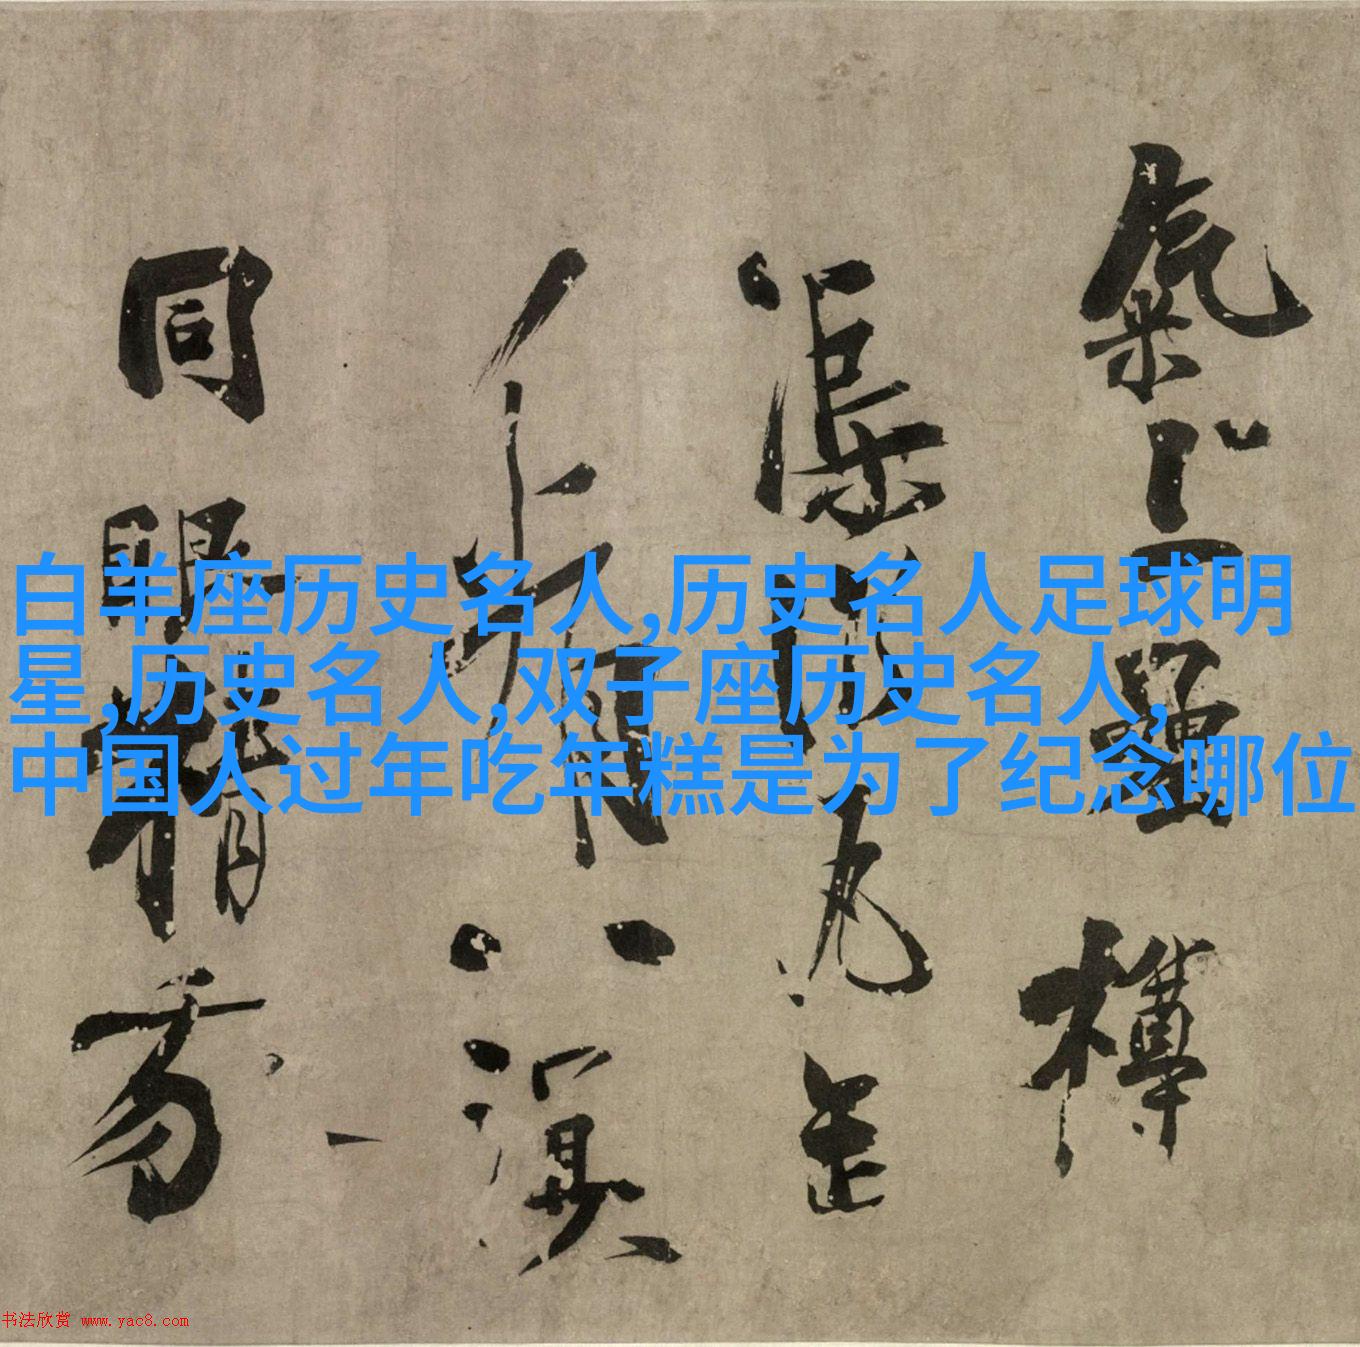 白羊座历史名人,历史名人足球明
星,历史名人,双子座历史名人,
中国人过年吃年糕是为了纪念哪位
氣
渠
八溟
同眼精
书法欣赏 www.yac8.com